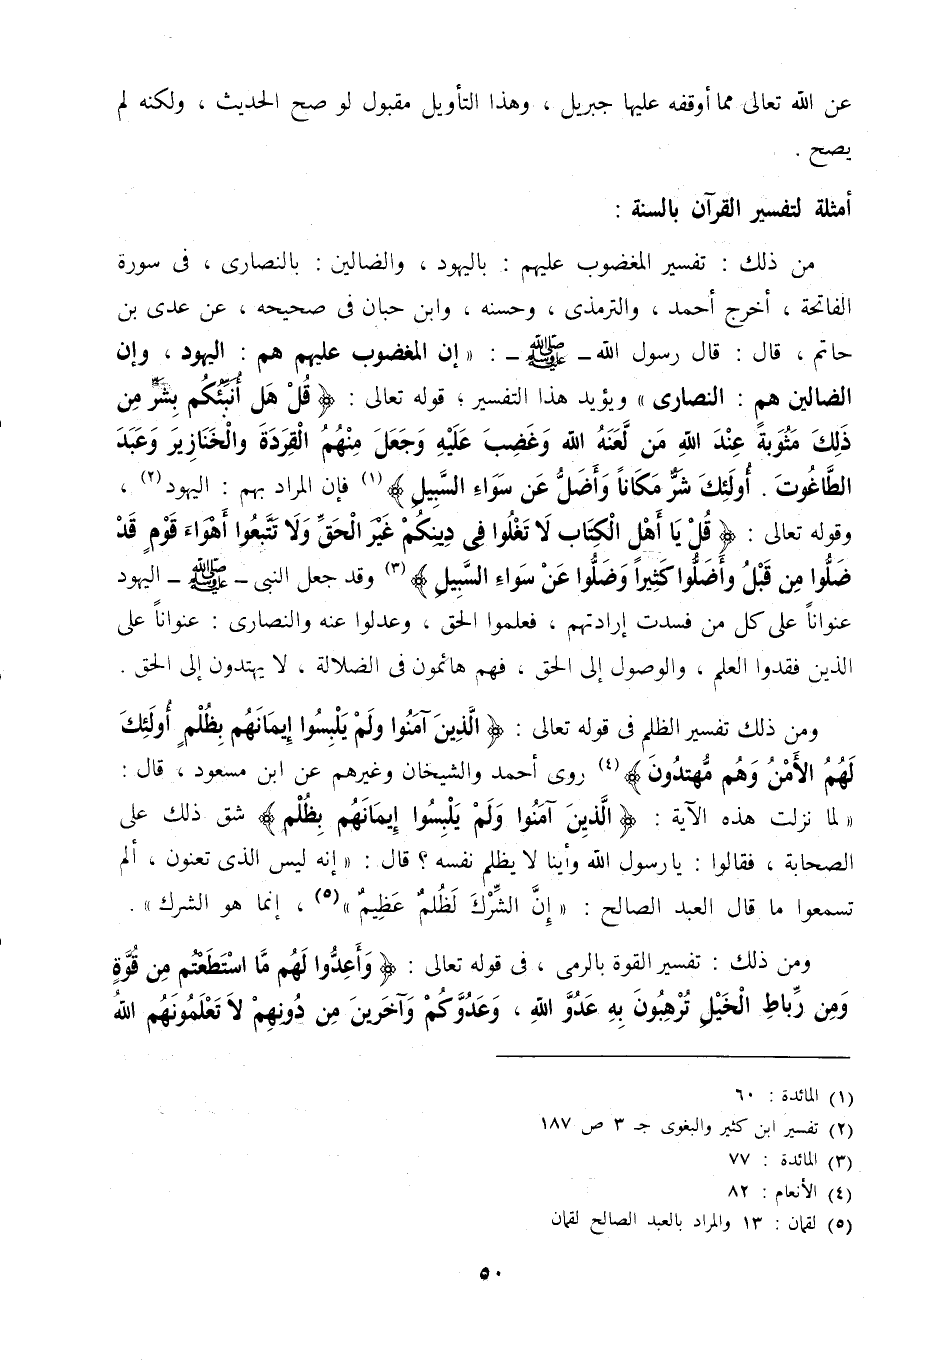 عن الله تعالى مما أوقفه عليها جبريل ، وهذا التأويل مقبول لو صح الحديث ، ولكنه لم
يصح .
أمثلة لتفسير القرآن بالسنة :
من ذلك : تفسير المغضوب عليهم : باليهود ، والضالين : بالنصارى ، فى سورة
الفاتحة ، أخرج أحمد ، والترمذى ، وحسنه ، وابن حبان فى صحيحه ، عن عدى بن
حاتم ، قال : قال رسول الله ـ ﷺ ـ : « إن المغضوب عليهم هم : اليهود ، وإن
الضالين هم : النصارى » ويؤيد هذا التفسير ؛ قوله تعالى : ﴿ قُلْ هَل أُنَبِّئُكُم بِشَرٍّ مِن
ذَلِكَ مَثُوبةً عِنْدَ اللهِ مَن لَّعَنَهُ الله وَغَضِبَ عَلَيْهِ وَجَعَلَ مِنْهُمُ الْقِرَدَةَ والْخَنَازِيرَ وَعَبَدَ
الطَّاغُوتَ . أُولَئِكَ شَرٌّ مَكَاناً وَأَضَلُّ عَن سَوَاءِ السَّبِيلِ ﴾(١) فإن المراد بهم : اليهود(٢) ،
وقوله تعالى : ﴿ قُلْ يَا أَهْل الْكِتَاب لَا تَغْلُوا فِى دِينِكُمْ غَيْرَ الْحَقِّ وَلَا تَتَّبِعُوا أَهْوَاءَ قَوْمٍ قَدْ
ضَلُّوا مِن قَبْلُ وأَضَلُّوا كَثِيراً وَضَلُّوا عَنْ سَوَاءِ السَّبِيلِ ﴾(٣) وقد جعل النبى ـ ﷺ ـ اليهود
عنواناً على كل من فسدت إرادتهم ، فعلموا الحق ، وعدلوا عنه والنصارى : عنواناً على
الذين فقدوا العلم ، والوصول إلى الحق ، فهم هائمون فى الضلالة ، لا يهتدون إلى الحق .
ومن ذلك تفسير الظلم فى قوله تعالى : ﴿ الَّذِينَ آمَنُوا ولَمْ يَلْبِسُوا إِيمَانَهُم بِظُلْمٍ أُولَئِكَ
لَهُمُ الأَمْنُ وَهُم مُّهتدُونَ ﴾(٤) روى أحمد والشيخان وغيرهم عن ابن مسعود ، قال :
« لما نزلت هذه الآية : ﴿ الَّذِينَ آمَنُوا وَلَمْ يَلْبِسُوا إِيمَانَهُم بِظُلْم ﴾ شق ذلك على
الصحابة ، فقالوا : يارسول الله وأينا لا يظلم نفسه ؟ قال : « إنه ليس الذى تعنون ، ألم
تسمعوا ما قال العبد الصالح : « إِنَّ الشِّرْكَ لَظُلمٌ عَظِيمٌ »(٥) ، إنما هو الشرك » .
ومن ذلك : تفسير القوة بالرمى ، فى قوله تعالى : ﴿ وَأَعِدُّوا لَهُم مَّا اسْتَطَعْتُم مِن قُوَّةٍ
وَمِن رِّبَاطِ الْخَيْلِ تُرْهِبُونَ بِهِ عَدُوَّ اللهِ ، وَعَدُوَّكُمْ وَآخَرِينَ مِن دُونِهِمْ لَا تَعْلَمُونَهُم اللهُ
(١) المائدة : ٦٠
(٢) تفسير ابن كثير والبغوى جـ ٣ ص ١٨٧
(٣) المائدة : ٧٧
(٤) الأنعام : ٨٢
(٥) لقمان : ١٣ والمراد بالعبد الصالح لقمان
٥٠